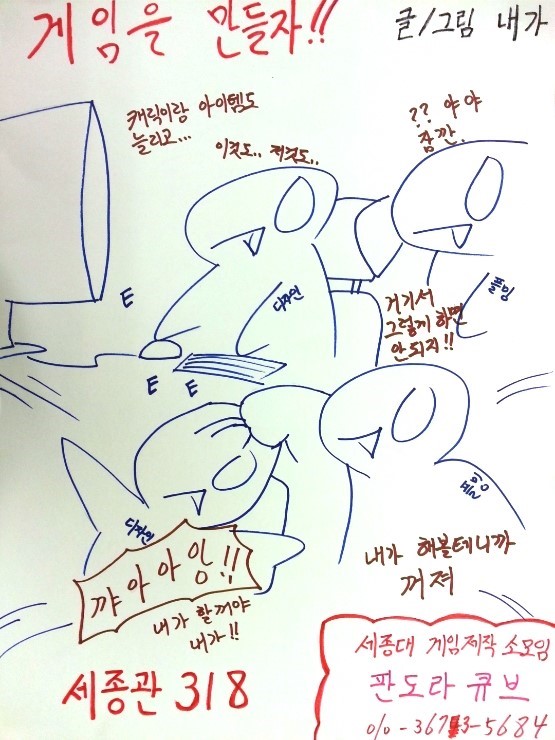 게임을 만들자!!
글/그림 내가
캐릭이랑 아이템도
늘리고...
이것도.. 저것도..
?? 야야
잠깐.
E
디자인
플밍
거기서
그렇게 하면
안되지!!
E E
디자인
플밍
꺄아아앙!!
내가 할꺼야
내가!!
내가 해볼테니까
꺼져
세종관 318
세종대 게임제작 소모임
판도라 큐브
010-3673-5684